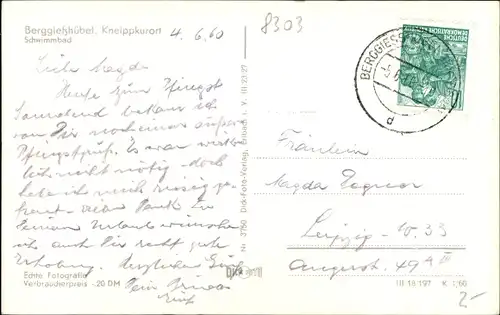 Berggießhübel, Kneippkurort
Schwimmbad
4.6.60
8303
Liebe Magda
Heute zum Pfingst
Sonnabend bekam ich
von Dir nochmal
Pfingstgruß. Es war wirk-
lich nicht nötig - doch
habe ich mich riesig ge-
freut - vielen Dank. Zu
Deinem Urlaub wünsche
ich auch Dir recht gute
Erholung. Herzliche
Dein
Echte Fotografie
Verbraucherpreis -,20 DM
Nr. 3760 Dick-Foto-Verlag, Erlbach i. V. III 23 27
BERGGIESSHÜBEL
d
DEUTSCHE
DEMOKRATISCHE
10
Fräulein
Magda
Leipzig W. 33
Auguststr. 49
III 18 197 K 1/60
2,-